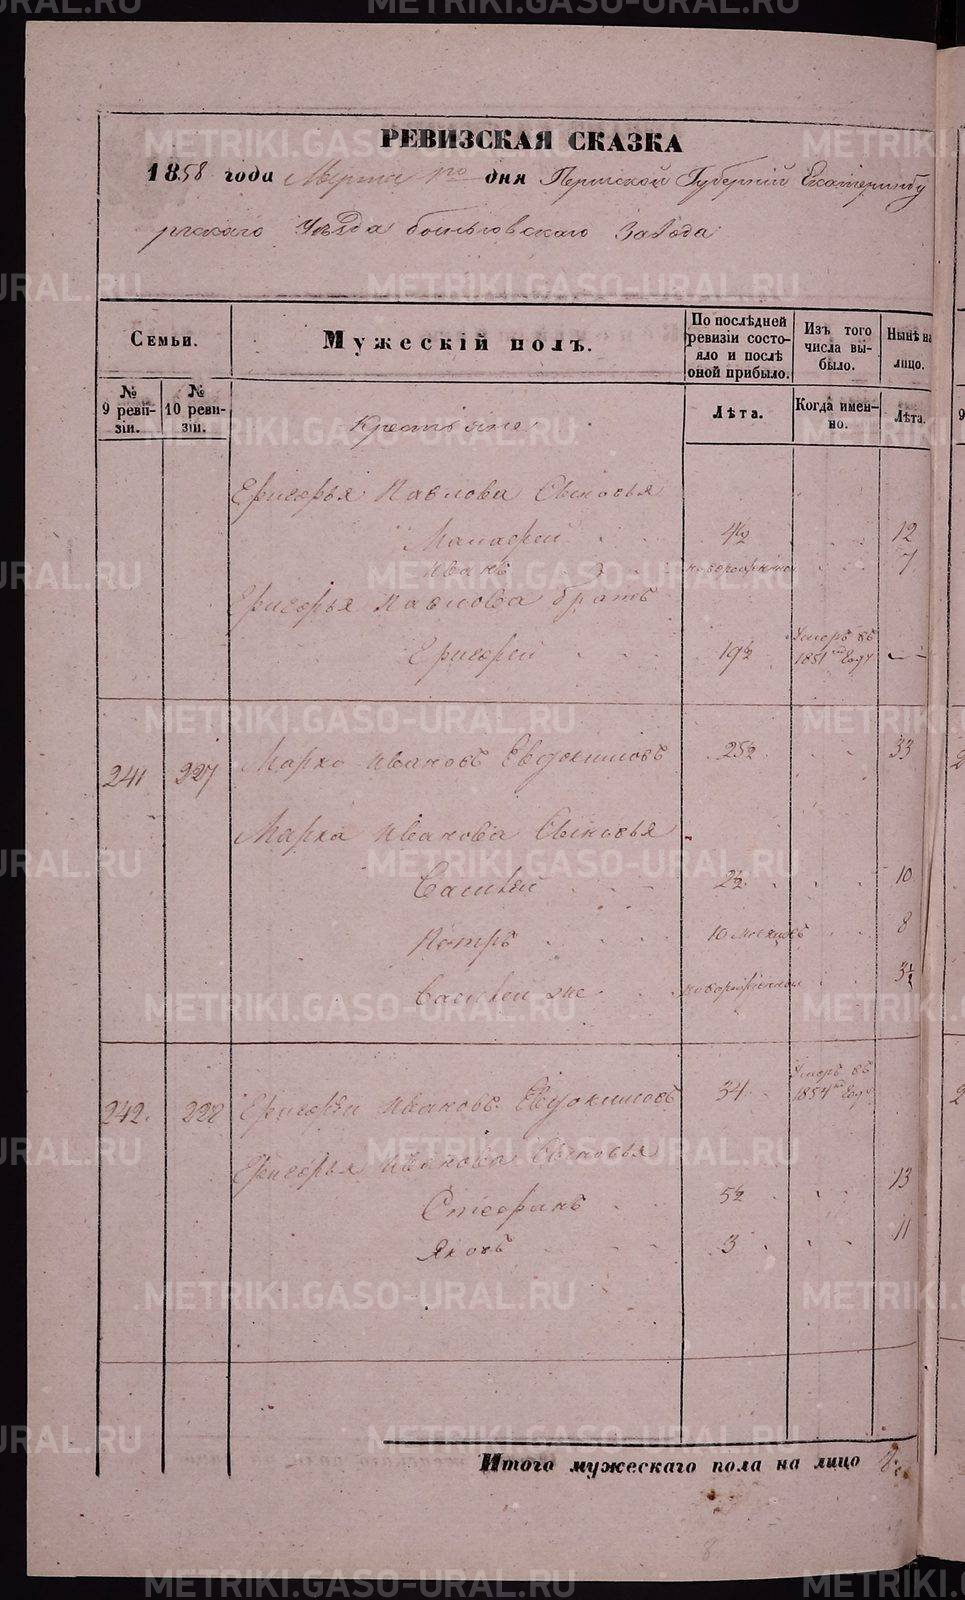 РЕВИЗСКАЯ СКАЗКА
1858 года Марта 1го дня Пермской Губерніи Екатеринбу
ргскаго Уѣзда Заводa
Семьи.
Мужескій полъ.
По послѣдней ревизіи состояло и послѣ оной прибыло.
Изъ того числа выбыло.
Нынѣ на лицо.
№ 9 ревизіи.
№ 10 ревизіи.
Лѣта.
Когда именно.
Лѣта.
Крестьяне
Григорья Павлова Сыновья
Малафей 4½ 12
Иванъ новорожденной 7
Григорья Павлова братъ
Григорей 19½ Умеръ въ 1851мъ Году —
241 227 Марко Ивановъ Евдокимовъ 25½ 33
Марка Иванова Сыновья
Василей 2½ 10
Петръ 10 месяцовъ 8
Василей же новорожденной 3½
242. 228 Григорѣй Ивановъ Евдокимовъ 34 Умеръ въ 1854мъ Году
Григорья Иванова Сыновья
Стефанъ 5½ 13
Яковъ 3 11
Итого мужескаго пола на лицо 8
8
METRIKI.GASO-URAL.RU